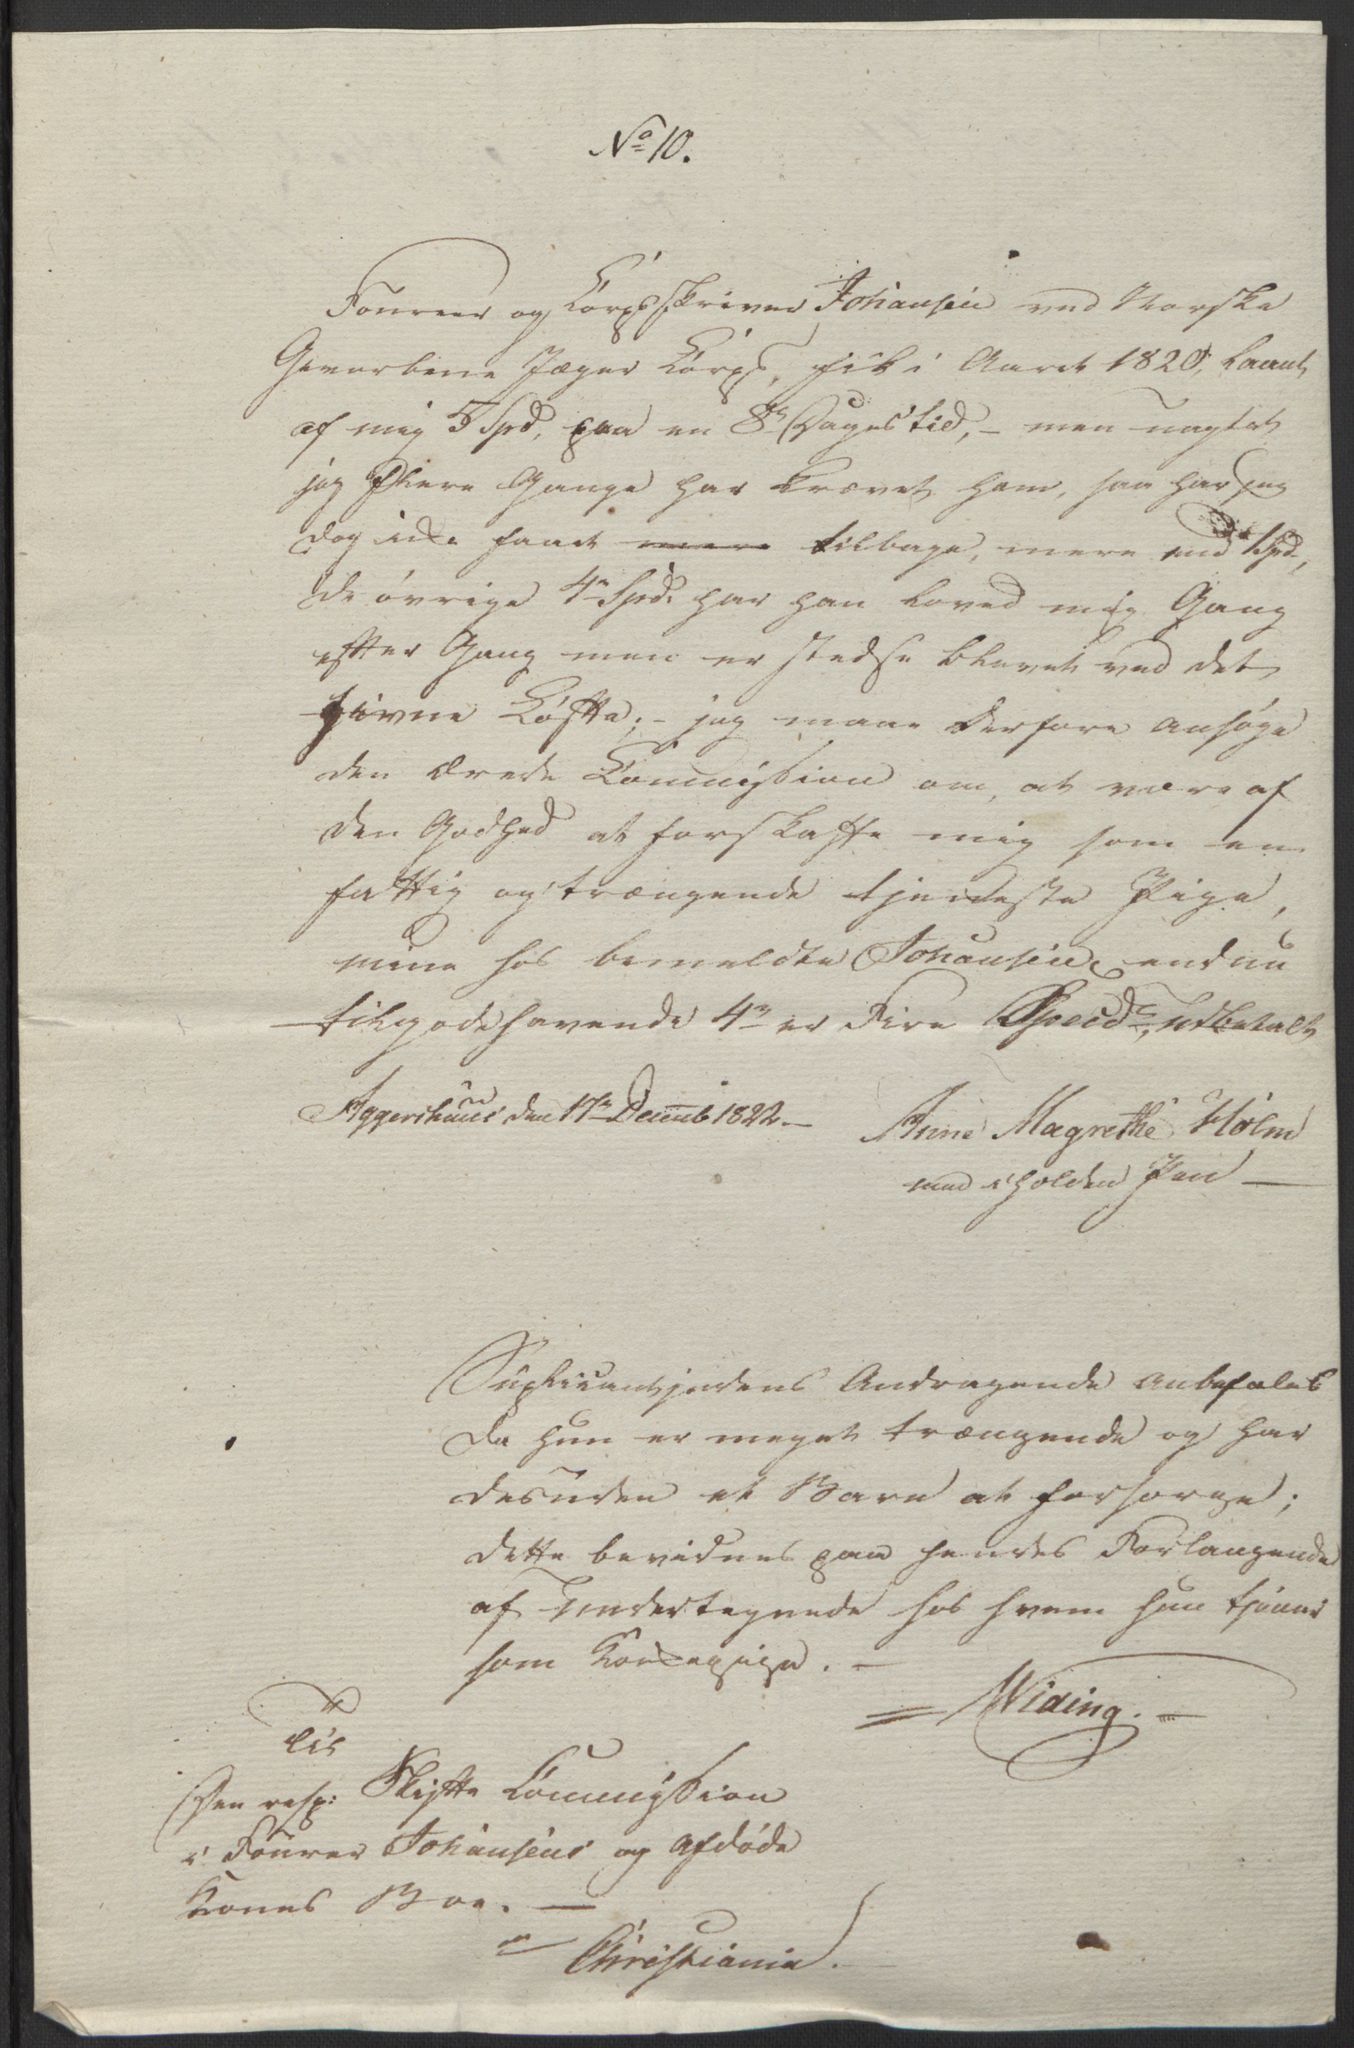 No 10.
Foureer og Corpsskriver Johansen ved Norske
Gevorbene Jæger Corps, fik i Aaret 1820, laant
af mig 5 Spd, paa en 8te Dages tid, - men uagtet
jeg flere Gange har krævet ham, saa har jeg
dog ikke faaet mere tilbage, mere end 1 Spd,
de øvrige 4re Spd. har han loved mig Gang
efter Gang men er stedse blevet ved det
givne Løfte; - jeg maae derfore ansøge
den ærede Commission om, at være af
den Godhed at forskaffe mig som en
fattig og trængende tjeneste Pige,
mine hos bemeldte Johansen endnu
tilgodehavende 4re er Fire Specid, udbetalt
Aggershuus den 17de Decemb 1822. -
Anne Magrethe Holm
med iholden Pen
Suplicantjndens Andragende anbefales
da hun er meget trængende og har
desuden et Barn at forsørge;
dette bevidnes paa hendes Forlangende
af Undertegnede hos hvem hun tjener
som Kokkepige. -
Widing. -
Til
Den resp: Skifte Commission
i Fourer Johansens og afdøde
Kones Boe. -
Christiania.